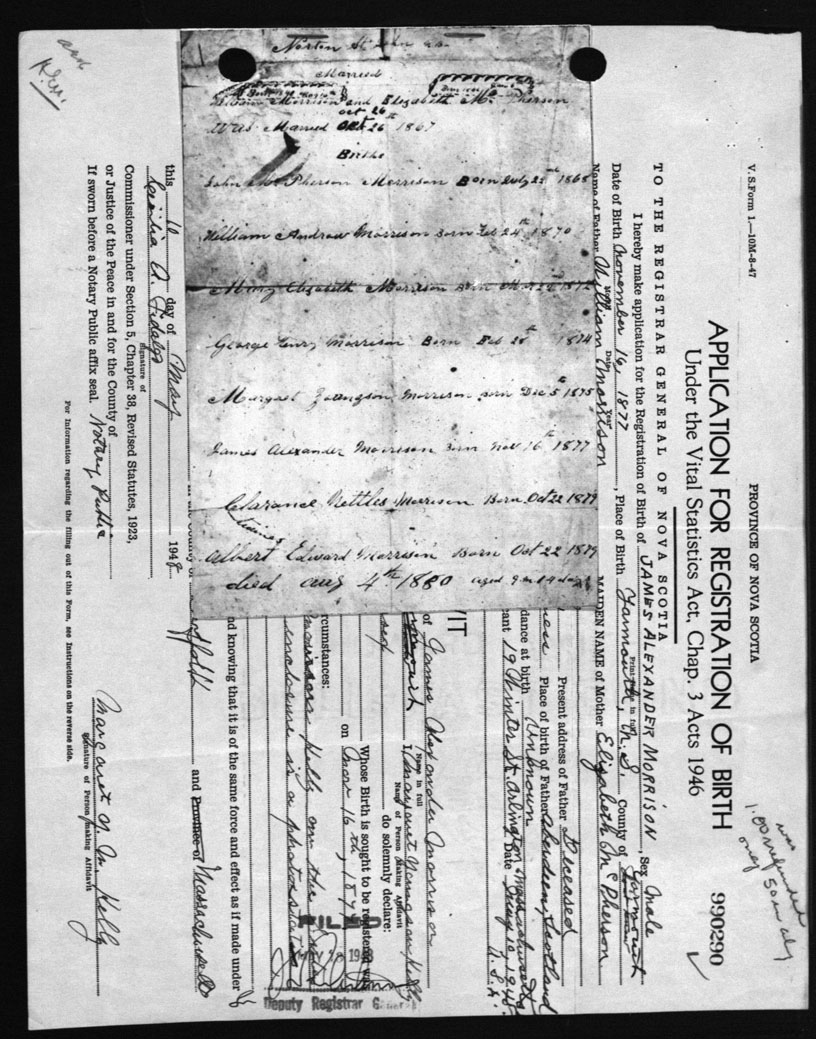 Married
William Morrison and Elizabeth Mc Pherson
oct 26
Was Married Oct 26th 1867
Births
John Mc Pherson Morrison Born July 22nd 1868
William Andrew Morrison Born Feb 24th 1870
Mary Elizabeth Morrison Born 1872
George Henry Morrison Born Feb 28th 1874
Margaret Morrison Born Dec 5th 1875
James Alexander Morrison Born Nov 16th 1877
Clarance Nettles Morrison Born Oct 22 1879
Albert Edward Morrison Born Oct 22 1879
died aug 4th 1880 aged 9 m
V. S. Form 1.—10M-8-47
PROVINCE OF NOVA SCOTIA
APPLICATION FOR REGISTRATION OF BIRTH
990290
Under the Vital Statistics Act, Chap. 3 Acts 1946
1.00 refunded
TO THE REGISTRAR GENERAL OF NOVA SCOTIA
I hereby make application for the Registration of Birth of JAMES ALEXANDER MORRISON, Sex Male
Date of Birth November 16, 1877, Place of Birth Yarmouth, N.S. County of Yarmouth
Name of Father William Morrison MAIDEN NAME of Mother Elizabeth McPherson
Present address of Father Deceased
Place of birth of Father Aberdeen, Scotland
dance at birth Unknown
19 Winter St. Arlington, Massachusetts Date May 10, 1948
U.S.A.
VIT
of James Alexander Morrison
(Name in full)
Name of Person Making Affidavit
do solemnly declare:
Whose Birth is sought to be registered w
on Nov 16th, 187
rcumstances:
enclosure is a photostatic
FILED
Deputy Registrar General
nd knowing that it is of the same force and effect as if made under
and Province of Massachusetts
this 10 day of May 1948
Cecilia A. Fidalgo
Signature of
Commissioner under Section 5, Chapter 38, Revised Statutes, 1923,
or Justice of the Peace in and for the County of
If sworn before a Notary Public affix seal. Notary Public
Signature of Person making Affidavit
For Information regarding the filling out of this Form, see Instructions on the reverse side.